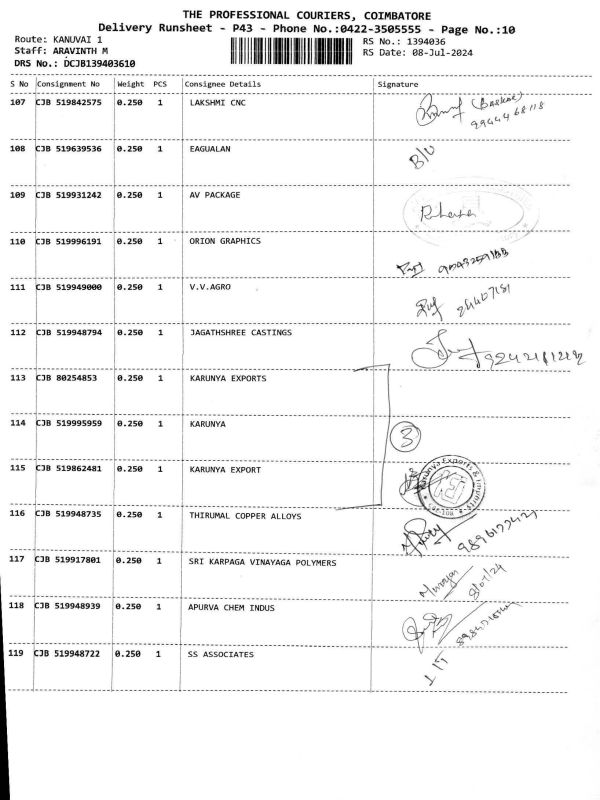 THE PROFESSIONAL COURIERS, COIMBATORE
Delivery Runsheet - P43 - Phone No.:0422-3505555 - Page No.:10
Route: KANUVAI 1 RS No.: 1394036
Staff: ARAVINTH M RS Date: 08-Jul-2024
DRS No.: DCJB139403610
S No Consignment No Weight PCS Consignee Details Signature
107 CJB 519842575 0.250 1 LAKSHMI CNC
108 CJB 519639536 0.250 1 EAGUALAN B/U
109 CJB 519931242 0.250 1 AV PACKAGE
110 CJB 519996191 0.250 1 ORION GRAPHICS
111 CJB 519949000 0.250 1 V.V.AGRO
112 CJB 519948794 0.250 1 JAGATHSHREE CASTINGS
113 CJB 80254853 0.250 1 KARUNYA EXPORTS
114 CJB 519995959 0.250 1 KARUNYA 3
115 CJB 519862481 0.250 1 KARUNYA EXPORT
116 CJB 519948735 0.250 1 THIRUMAL COPPER ALLOYS
117 CJB 519917801 0.250 1 SRI KARPAGA VINAYAGA POLYMERS
118 CJB 519948939 0.250 1 APURVA CHEM INDUS
119 CJB 519948722 0.250 1 SS ASSOCIATES